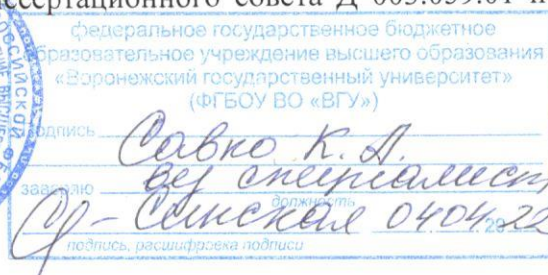 диссертационного совета Д 003.059.01
федеральное государственное бюджетное
образовательное учреждение высшего образования
«Воронежский государственный университет»
(ФГБОУ ВО «ВГУ»)
подпись Савко К. А.
заверяю вед специалист
должность
Синская 04.04.22
подпись, расшифровка подписи